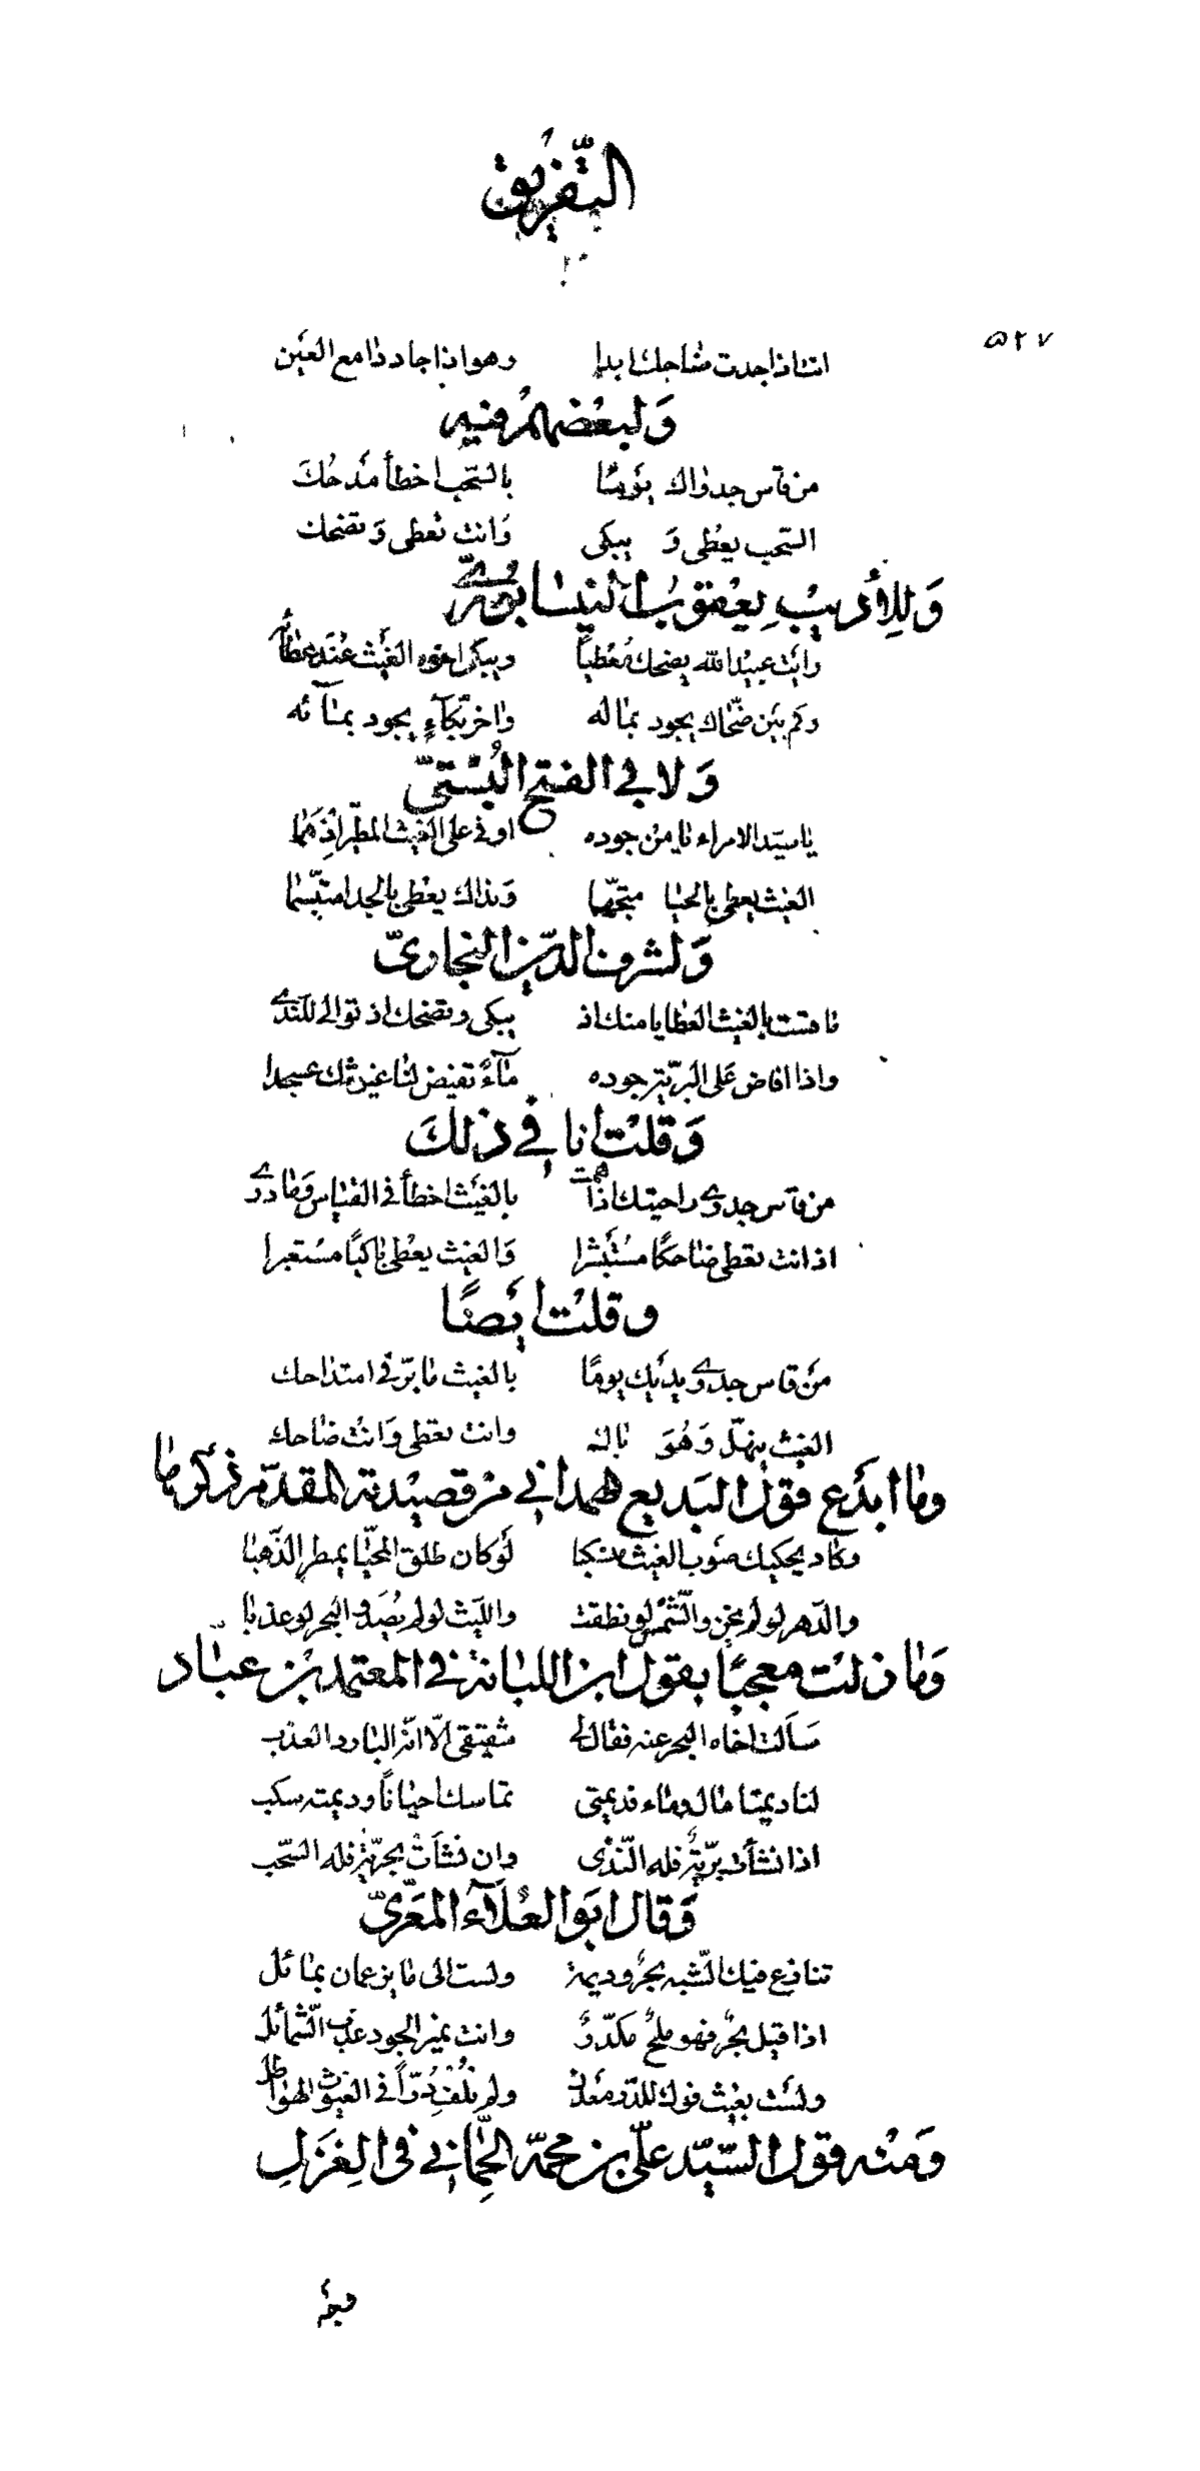 التّفريق
٥٢٧
انت اذا جدت ضاحك ابدا وهو اذا جاد دامع العين
وَلبعْضهمْ فيه
من قاس جدواك يَومًا بالسّحب اخطأ مَدحُكَ
السّحب يعْطى وَ يبكى وَانت تعْطى وَ تضحك
وَلِلأديبْ يعْقوبُ النيسَابورىّ
رايَت عبيْد الله يضحك مُعْطياً ويبكى اخوه الغيْث عنْد عطائه
وكم بيَن ضّحاك يجود بماله واخر بكّآءٍ يجود بمآئه
وَلابي الفتح البُسْتىّ
يا سيّد الامراء يا من جوده اوفى على الغيْث المطير اذ همى
الغيث يعطى بالحيا متجهّما وَنداك يعْطى بالجدا متبّسما
وَلشرف الدّين النجارىّ
ما قست بالغيْث العطايا منك اذ يبكى وتضحك اذ توالى للنّدى
واذا افاض عَلى البَريّة جوده مآءً تفيض لنا غيوثك عسجدا
وَقلْت انا في ذلكَ
من قاس جدوى راحيتك اذا همت بالغَيْث اخطأ فى القياس وَما درى
اذ انت تعْطى ضاحكًا مسْتَبشرا وَالغيث يعْطى باكيًا مسْتعبرا
وقلْت ايَضًا
منْ قاس جدوى يديْك يومًا بالغيث ما برّ فى امتداحك
الغيث ينهلّ وَهْوَ باك وانت تعْطى وَانت ضاحك
وما ابدَع قول البَديع الهمداني من قصيْدته المقدّم ذكرها
وكاد يحكيك صَوب الغيث منسكبا لوَكان طلق المحيّا يمطر الذّهبا
والدّهر لو لم يخن والشّمس لو نطقت والليَث لو لم يصَد والبحر لو عذبا
وَما زلت معجبًا بقول ابن اللبانة فى المعتمد بْن عبّاد
سَألت اخاه البحر عنه فقال لى شقيقى الّا انّه البارد العذب
لنا ديمتا ماء ومال فديمتى تماسك احياناً وديمته سكب
اذا نشأت برّيةٌ فله النّدى وان نشأتْ بحريّة فله السّحب
وَقال ابوَ العُلآء المعَرّىّ
تنازع فيك الشّبه بحرٌ وديمة ولست الى ما يزعمان بمائل
اذا قيل بحرٌ فهو ملحٌ مكدّرٌ وانت نمير الجود عذب الشّمائل
ولسْت بغيْث فوك للدّر معَدن ولم نُلْف دُرّاً فى الغيوث الهواطل
وَمنْه قول السّيّد علىّ بن محمّد الحِمّاني فى الغِزَلِ